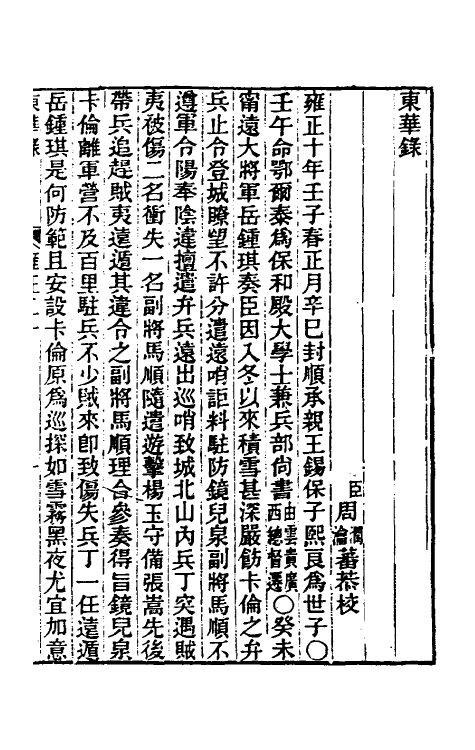 東華錄
臣周潤瀹蕃恭校
雍正十年壬子春正月辛巳封順承親王錫保子熙良爲世子〇
壬午命鄂爾泰爲保和殿大學士兼兵部尙書由雲貴廣西總督遷〇癸未
甯遠大將軍岳鍾琪奏臣因入冬以來積雪甚深嚴飭卡倫之弁
兵止令登城瞭望不許分遣遠哨詎料駐防鏡兒泉副將馬順不
遵軍令陽奉陰違擅遣弁兵遠出巡哨致城北山內兵丁突遇賊
夷被傷二名衝失一名副將馬順隨遣遊擊楊玉守備張嵩先後
帶兵追趕賊夷遠遁其違令之副將馬順理合參奏得旨鏡兒泉
卡倫離軍營不及百里駐兵不少賊來卽致傷失兵丁一任遠遁
岳鍾琪是何防範且安設卡倫原爲巡探如雪霧黑夜尤宜加意
東華錄 雍正二十